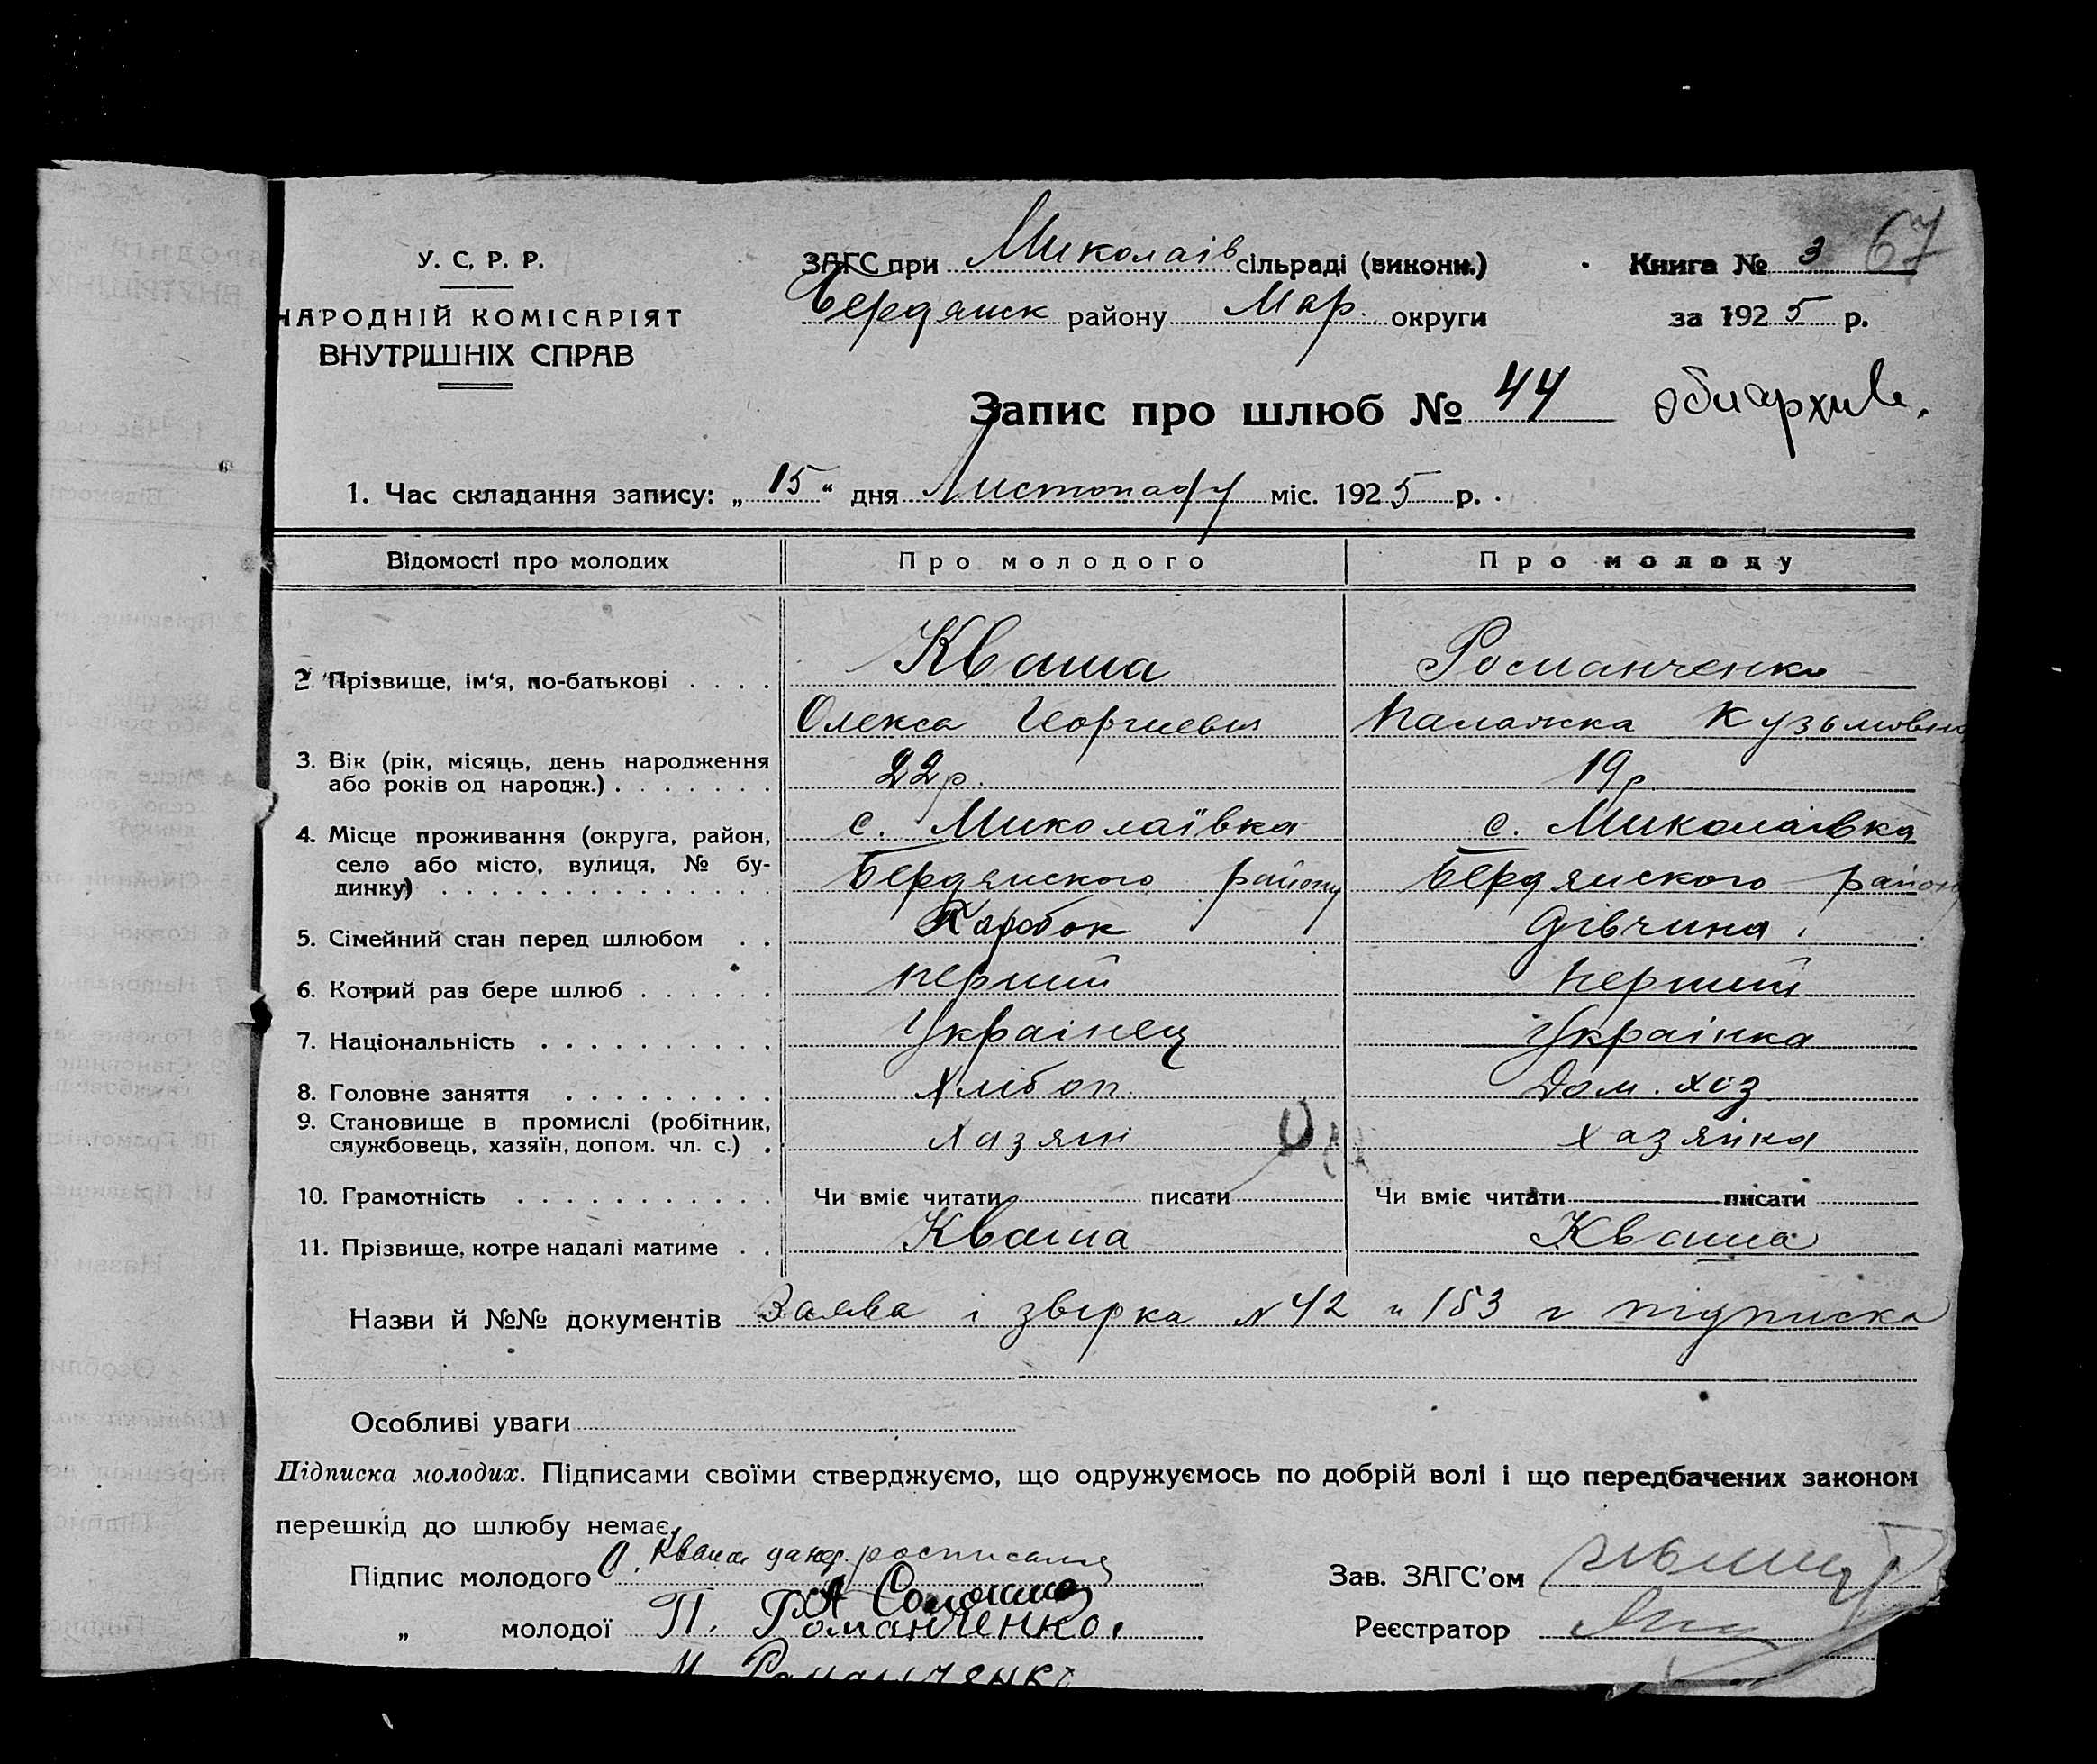 67
У. С. Р. Р.
НАРОДНІЙ КОМІСАРІЯТ
ВНУТРІШНІХ СПРАВ
ЗАГС при Миколаів сільраді (викони.) Книга № 3
Бердянск району Мар. округи за 1925 р.
Запис про шлюб № 44
1. Час складання запису: „ 15 “ дня Листопаду міс. 1925 р.
Відомості про молодих Про молодого Про молоду
2. Прізвище, ім'я, по-батькові . . . . Кваша Романченко
Олекса Георгиевич Палажка Кузьмовна
3. Вік (рік, місяць, день народження
або років од народж.) . . . . . . . 22 р. 19 р
4. Місце проживання (округа, район, с. Миколаївка с. Миколаівка
село або місто, вулиця, № бу-
динку) . . . . . . . . . . . . . . Бердянского району Бердянского району
5. Сімейний стан перед шлюбом . . Паробок Дівчина
6. Котрий раз бере шлюб . . . . . . перший перший
7. Національність . . . . . . . . . . Украінец Украінка
8. Головне заняття . . . . . . . . . Хлібоп. Дом. хоз
9. Становище в промислі (робітник,
службовець, хазяїн, допом. чл. с.) . Хазяін хазяйка
10. Грамотність . . . . . . . . . . . Чи вміє читати писати Чи вміє читати писати
11. Прізвище, котре надалі матиме . . Кваша Кваша
Назви й №№ документів Заява і звірка № 42 и 153 и підписка
Особливі уваги
Підписка молодих. Підписами своїми стверджуємо, що одружуємось по добрій волі і що передбачених законом
перешкід до шлюбу немає.
Підпис молодого О. Кваша росписался Зав. ЗАГС'ом
А
„ молодої П. Романченко. Реєстратор
Романченко